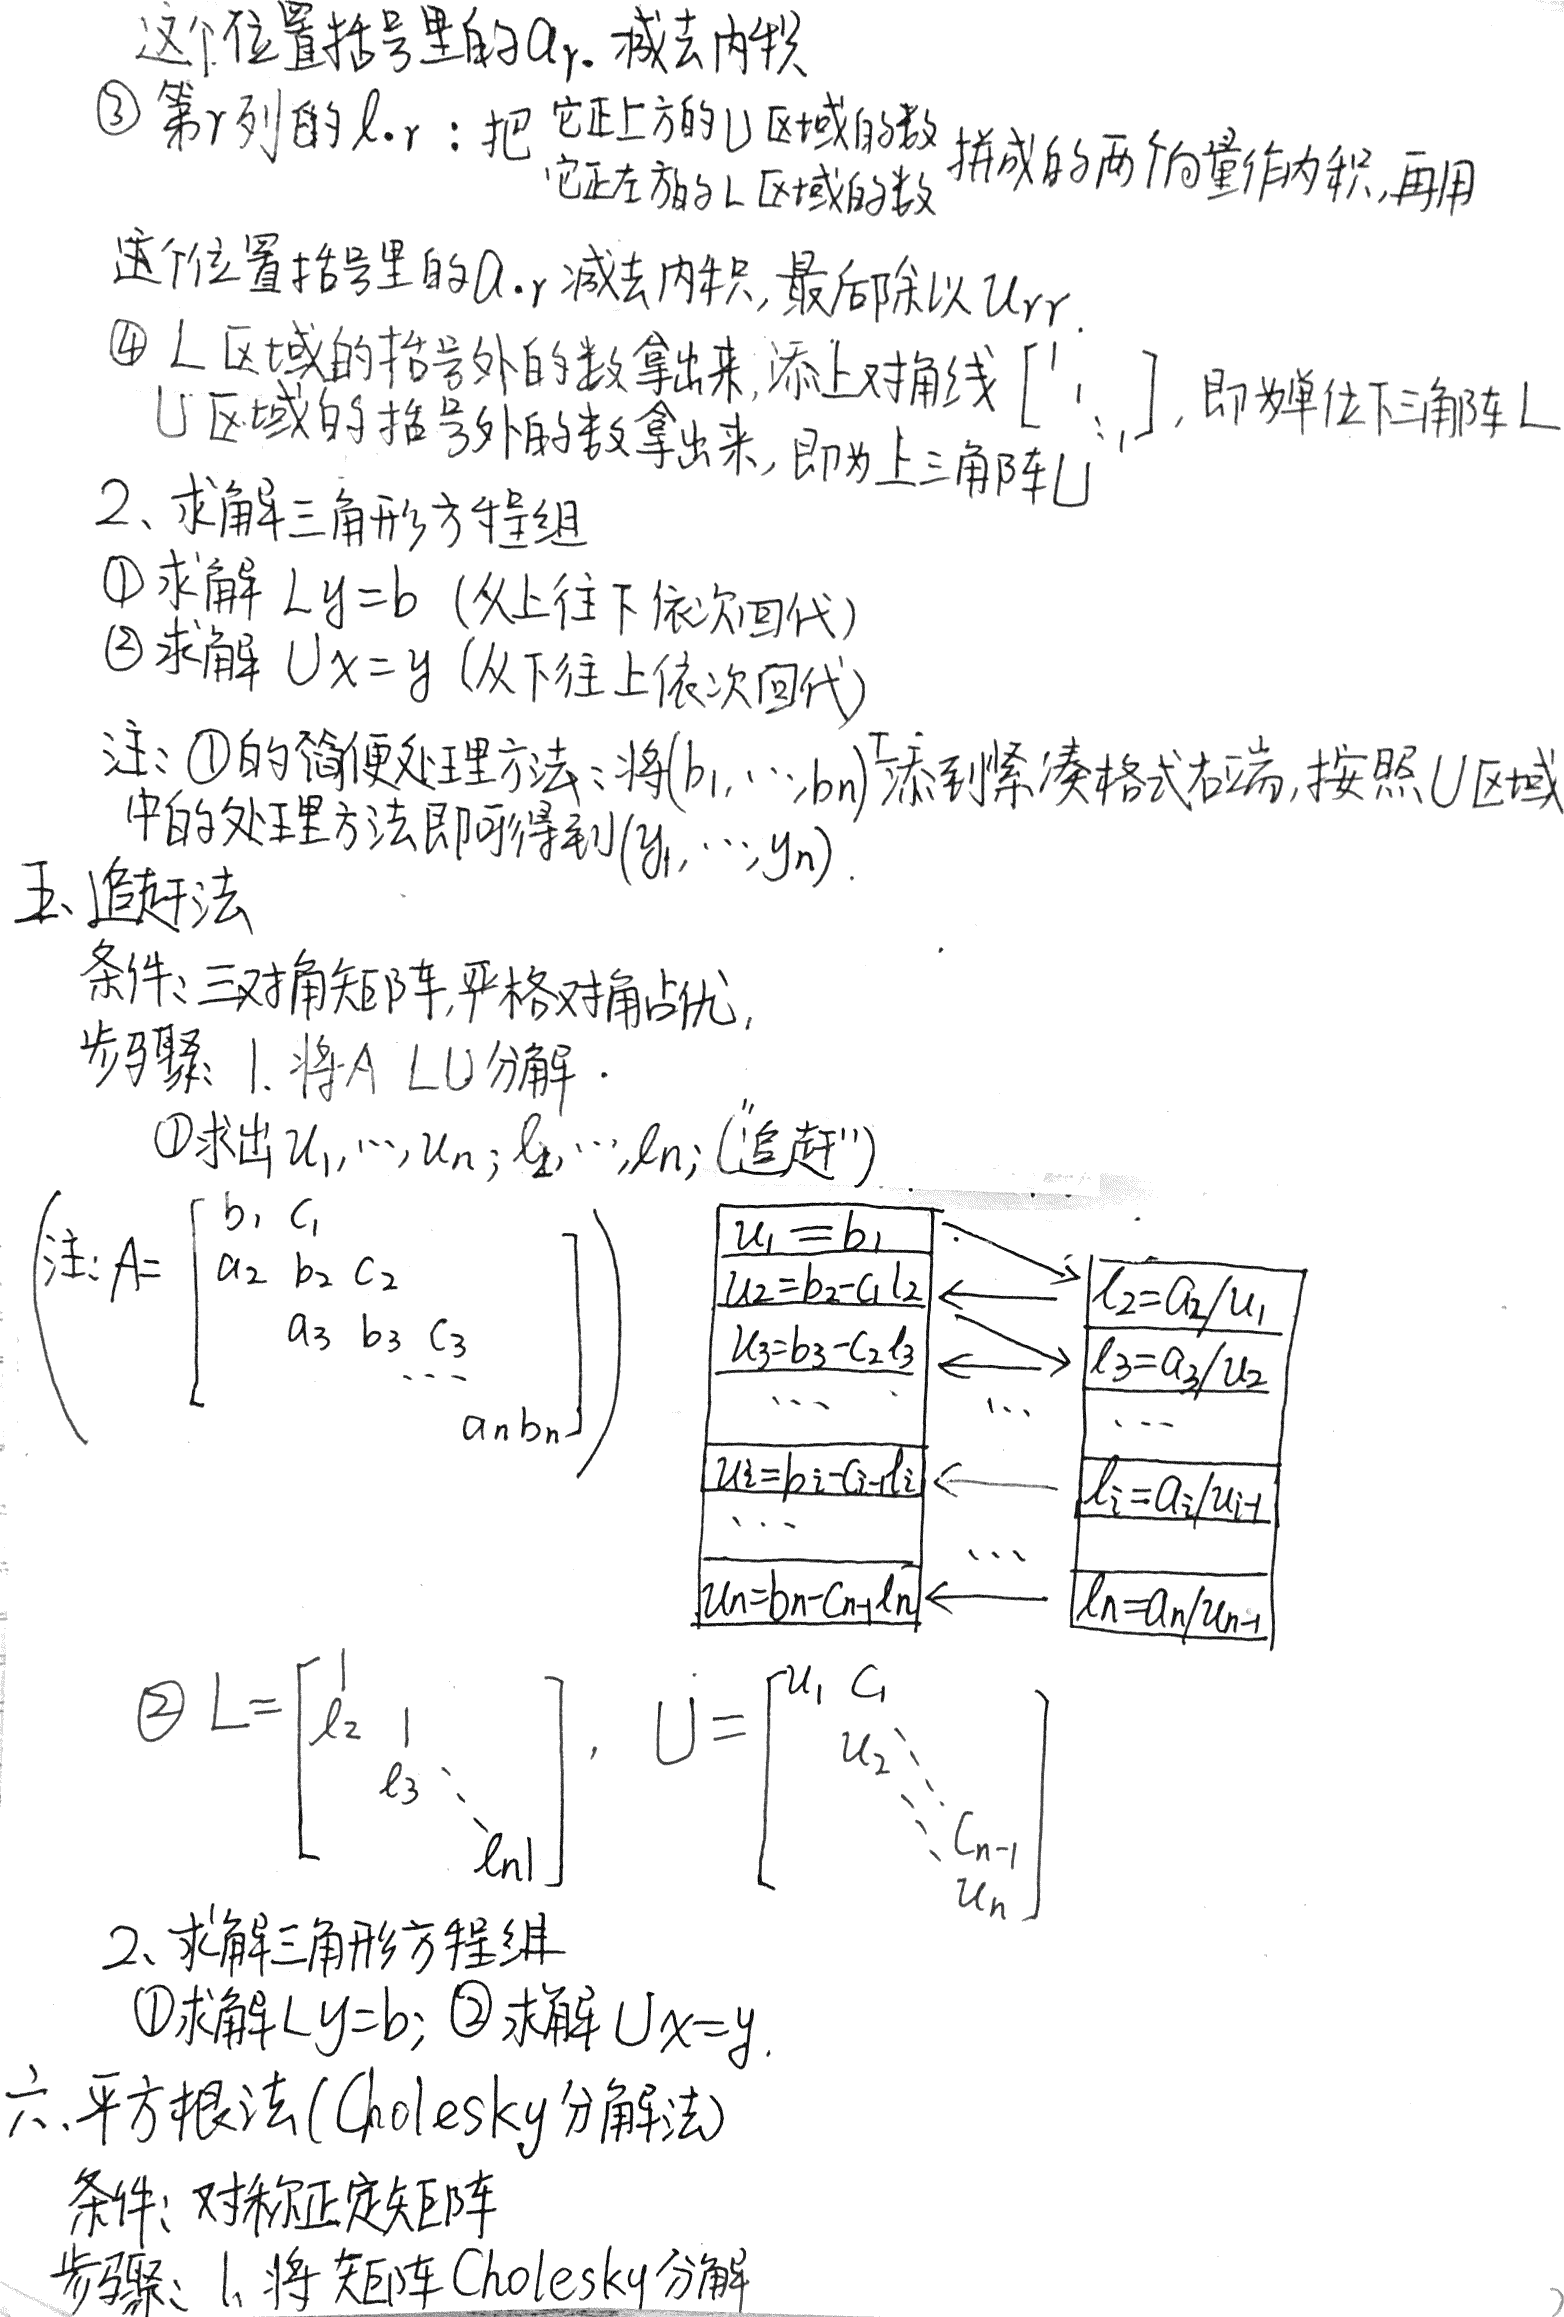 这个位置括号里的a_r· 减去内积
③ 第r列的l·r：把 它正上方的U区域的数 拼成的两个向量作内积,再用
它正左方的L区域的数
这个位置括号里的a·r减去内积,最后除以u_rr.
④ L区域的括号外的数拿出来,添上对角线 [1 1 ⋱ 1], 即为单位下三角阵L
U区域的括号外的数拿出来,即为上三角阵U
2、求解三角形方程组
①求解 Ly=b (从上往下依次回代)
②求解 Ux=y (从下往上依次回代)
注: ①的简便处理方法: 将(b₁,…,bn)ᵀ添到紧凑格式右端,按照U区域
中的处理方法即可得到(y₁,…,yn).
五、追赶法
条件: 三对角矩阵,严格对角占优,
步骤: 1. 将A LU分解.
①求出u₁,…,un; l₂,…,ln; ("追赶")
(注: A= [b₁ c₁
a₂ b₂ c₂
a₃ b₃ c₃
…
an bn])
u₁=b₁
u₂=b₂-c₁l₂
u₃=b₃-c₂l₃
…
uᵢ=bᵢ-cᵢ₋₁lᵢ
…
un=bn-cn-1 ln
…
…
l₂=a₂/u₁
l₃=a₃/u₂
…
lᵢ=aᵢ/uᵢ₋₁
ln=an/un-1
② L= [1
l₂ 1
l₃ ⋱
ln 1], U= [u₁ c₁
u₂ ⋱
⋱ cn-1
un]
2、求解三角形方程组
①求解Ly=b; ②求解Ux=y.
六、平方根法(Cholesky分解法)
条件: 对称正定矩阵
步骤: 1、将矩阵Cholesky分解